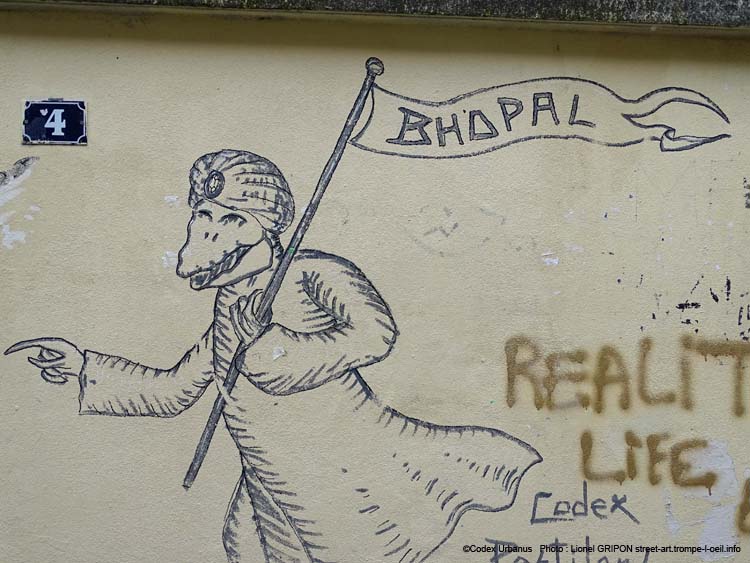 4
BHOPAL
REALIT
LIFE
Codex
©Codex Urbanus Photo : Lionel GRIPON street-art.trompe-l-oeil.info